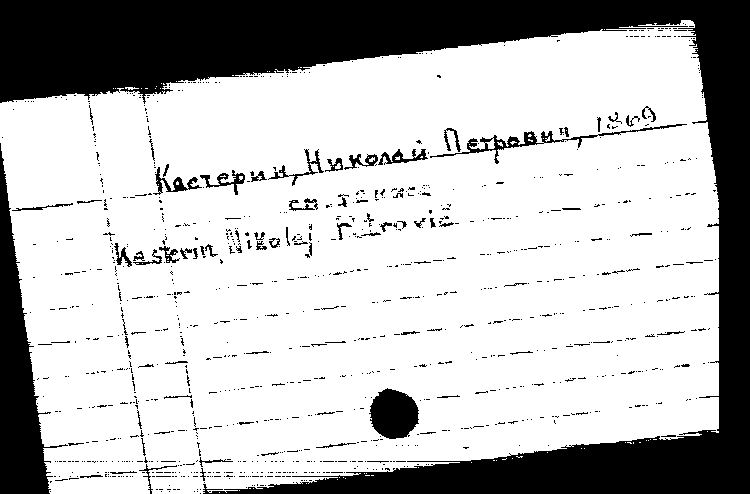 Кастерин, Николай Петрович, 1869
см. также
Kasterin, Nikolaj Petrovič